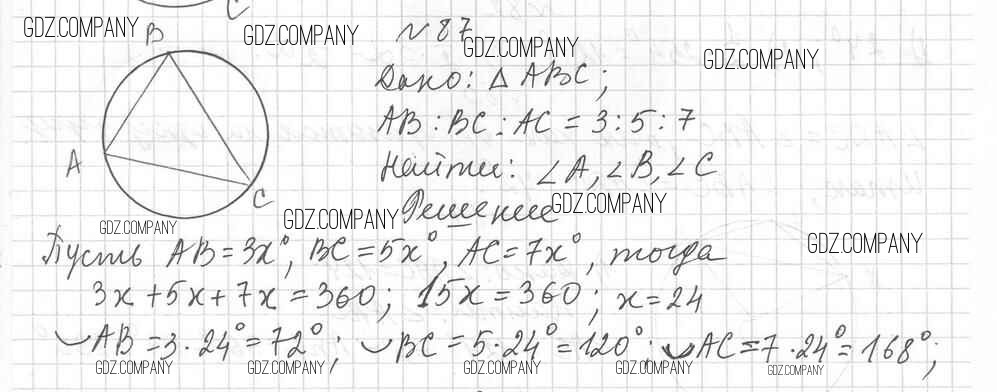 GDZ.COMPANY
GDZ.COMPANY
GDZ.COMPANY
GDZ.COMPANY
C
B
№ 87
Дано: △ ABC;
AB : BC : AC = 3 : 5 : 7
A
Найти: ∠A, ∠B, ∠C
C
GDZ.COMPANY
GDZ.COMPANY
Решение
GDZ.COMPANY
GDZ.COMPANY
Пусть AB = 3x°, BC = 5x°, AC = 7x°, тогда
3x + 5x + 7x = 360; 15x = 360; x = 24
◡AB = 3 · 24° = 72°; ◡BC = 5 · 24° = 120°; ◡AC = 7 · 24° = 168°;
GDZ.COMPANY
GDZ.COMPANY
GDZ.COMPANY
GDZ.COMPANY
GDZ.COMPANY